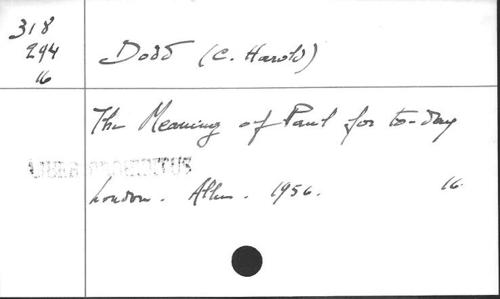 318
294
16
Dodd (C. Harold)
The Meaning of Paul for to-day
London. Allen. 1956. 16